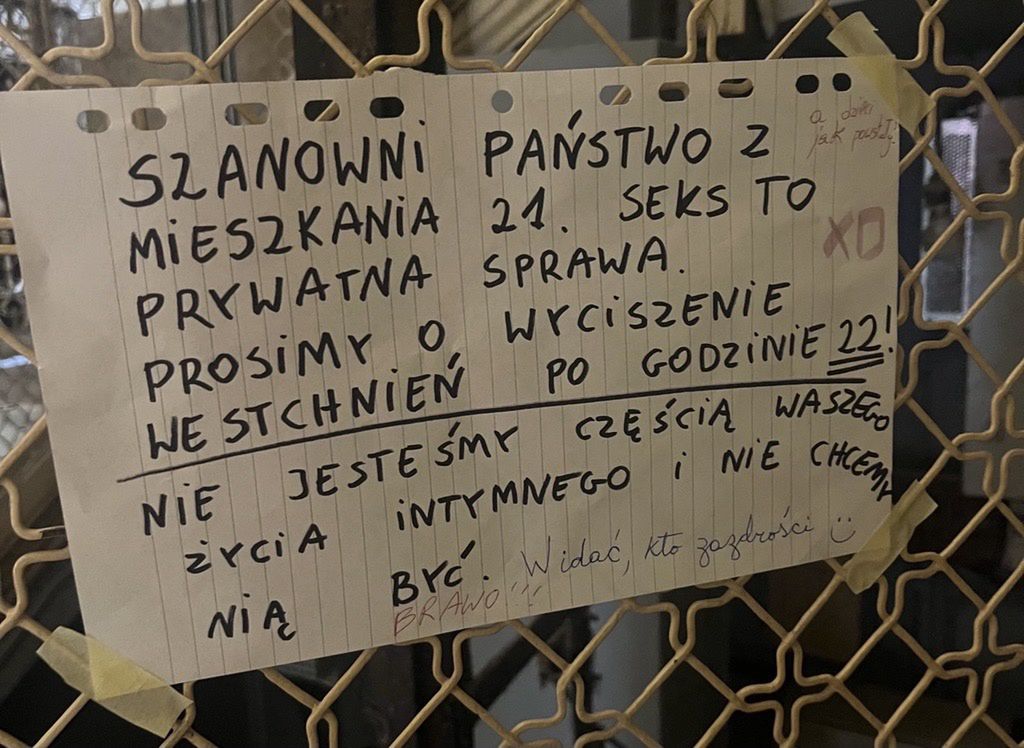 SZANOWNI PAŃSTWO Z
MIESZKANIA 21. SEKS TO
PRYWATNA SPRAWA.
PROSIMY O WYCISZENIE
WESTCHNIEŃ PO GODZINIE 22!
NIE JESTEŚMY CZĘŚCIĄ WASZEGO
ŻYCIA INTYMNEGO I NIE CHCEMY
NIĄ BYĆ.
Widać, kto zazdrości :)
BRAWO!!!
a dzieci
jak powstają?
XD